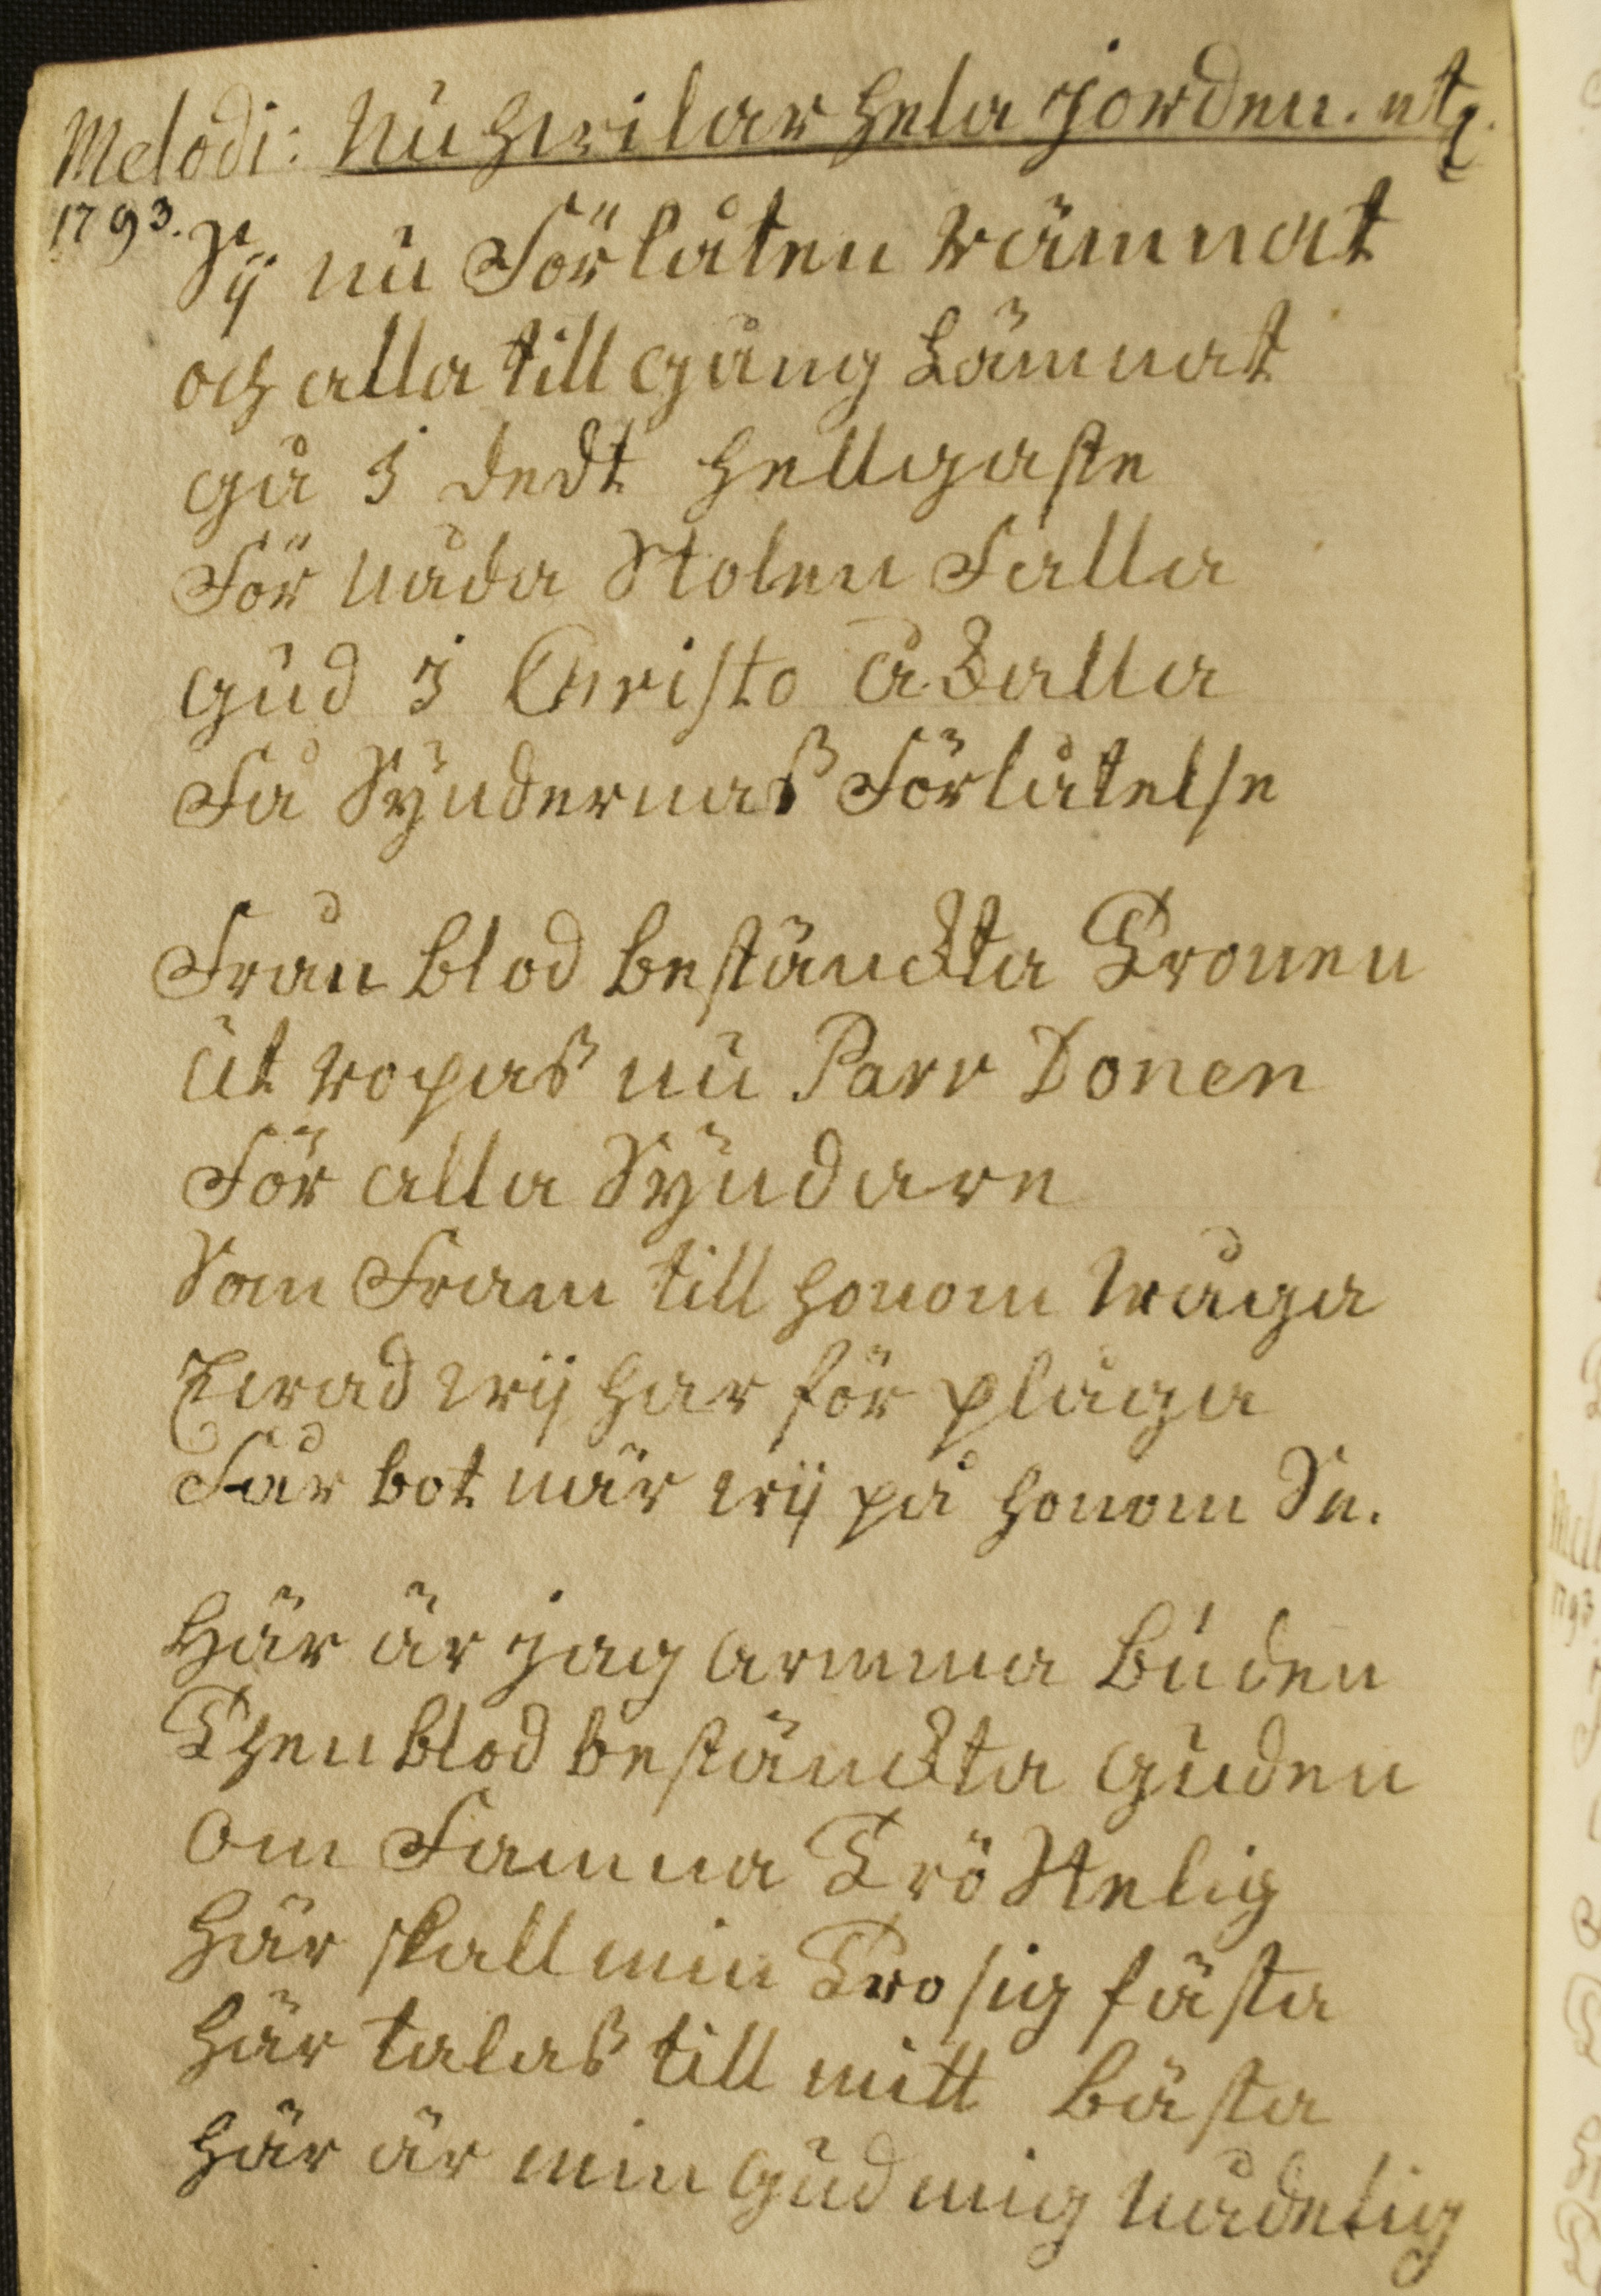 Melodi: Nu hwilar hela jorden. etc.
1793. Sij nu Förlåten rämnat
och alla till gång Lämnat
gå i dedt Hellgaste
För Nåda Stolen Falla
gud i Christo åkalla
Få Syndernaß Förlåtelse
Från blod bestänckta Tronen
ut ropaß nu Parr Donen
För alla Syndare
Som Fram till honom wåga
Ewad wij har för plåga
Får bot när wij på honom Se.
Här är jag arma Buden
Then blod bestänckta guden
om Famna Tröstelig
Här skall min Tro sig fästa
Här talaß till mitt Bästa
Här är min gud mig Nådelig